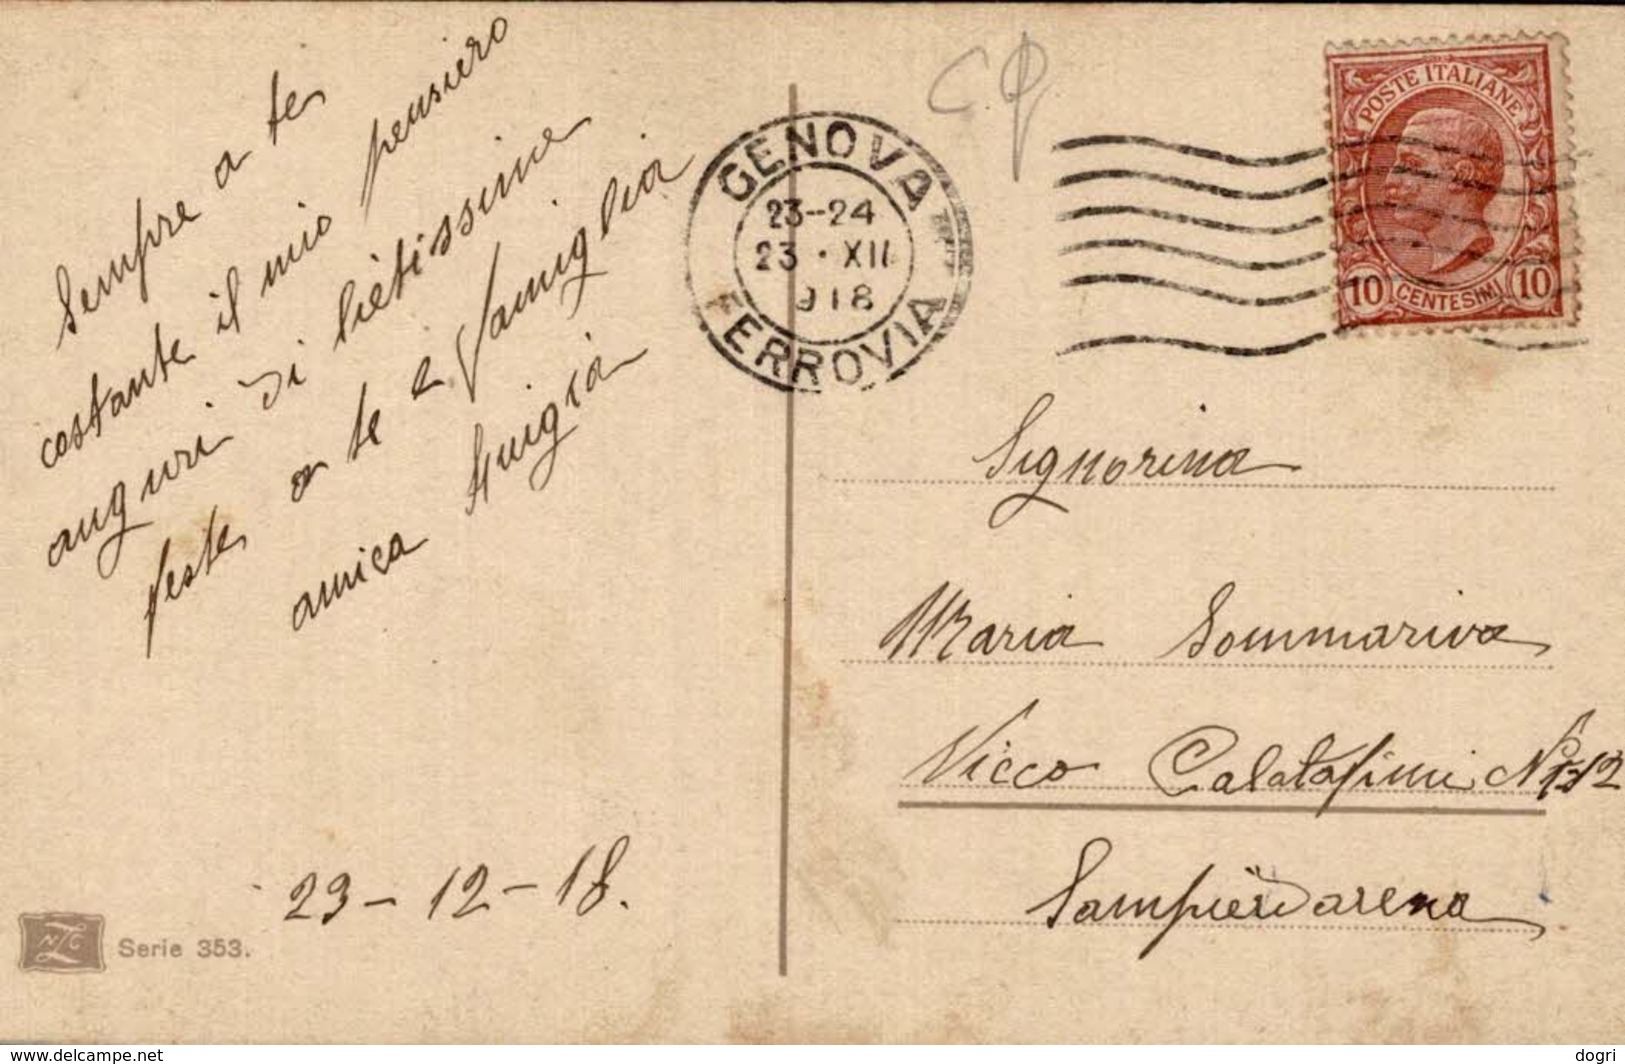 Sempre a te
costante il mio pensiero
auguri di lietissime
feste a te e famiglia
amica Luigia
23-12-18.
NZG
Serie 353.
C.P.
GENOVA
23-24
23 · XII
918
FERROVIA
POSTE ITALIANE
10 CENTESIMI 10
Signorina
Maria Sommariva
Vicco Calatafimi N°
Sampierdarena
www.delcampe.net
dogri